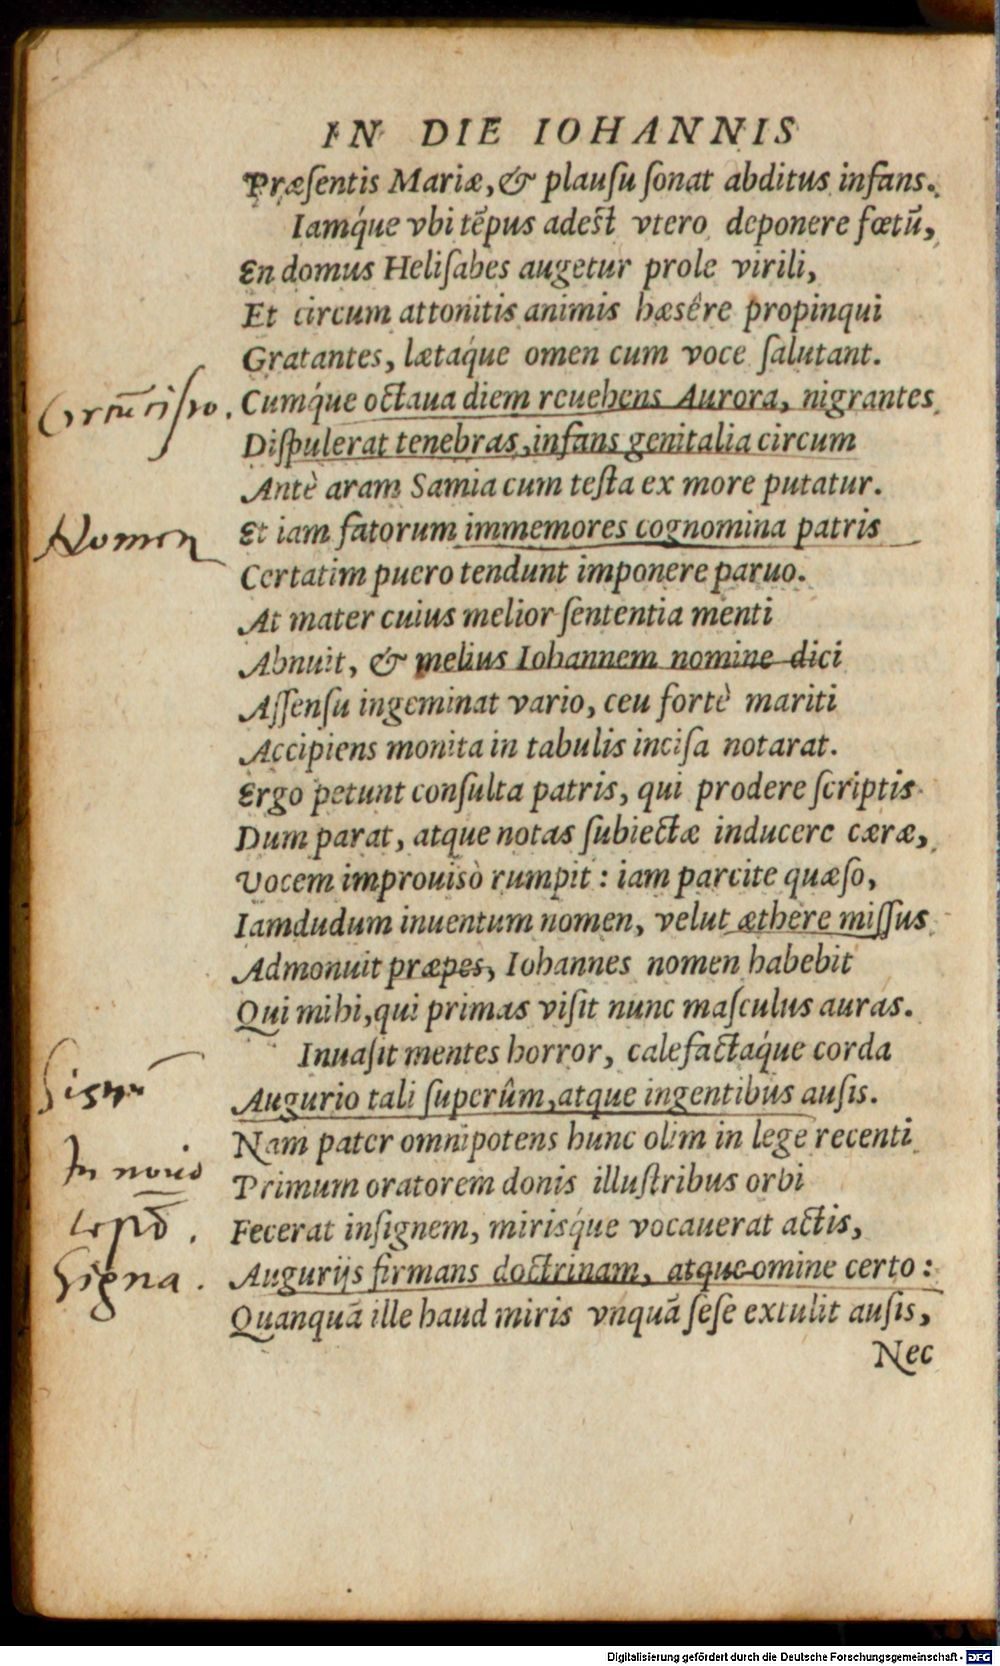 IN DIE IOHANNIS
Præſentis Mariæ, & plauſu ſonat abditus infans.
Iamq́ue vbi tẽpus adest vtero deponere fœtũ,
En domus Heliſabes augetur prole virili,
Et circum attonitis animis hæsêre propinqui
Gratantes, lætaq́ue omen cum voce ſalutant.
Circũcisio. Cumq́ue octaua diem reuehens Aurora, nigrantes
Diſpulerat tenebras, infans genitalia circum
Antè aram Samia cum teſta ex more putatur.
Nomen Et iam fatorum immemores cognomina patris
Certatim puero tendunt imponere paruo.
At mater cuius melior ſententia menti
Abnuit, & melius Iohannem nomine dici
Aſſenſu ingeminat vario, ceu fortè mariti
Accipiens monita in tabulis inciſa notarat.
Ergo petunt conſulta patris, qui prodere ſcriptis
Dum parat, atque notas ſubiectæ inducere cæræ,
Vocem improuisò rumpit: iam parcite quæſo,
Iamdudum inuentum nomen, velut æthere miſſus
Admonuit præpes, Iohannes nomen habebit
Qui mihi, qui primas viſit nunc maſculus auras.
Inuaſit mentes horror, calefactaq́ue corda
Augurio tali ſuperûm, atque ingentibus auſis.
Nam pater omnipotens hunc olim in lege recenti
In nouo Primum oratorem donis illuſtribus orbi
Fecerat inſignem, mirisq́ue vocauerat actis,
Signa. Augurijs firmans doctrinam, atque omine certo:
Quanquã ille haud miris vnquã ſeſe extulit auſis,
Nec
Digitalisierung gefördert durch die Deutsche Forschungsgemeinschaft - DFG